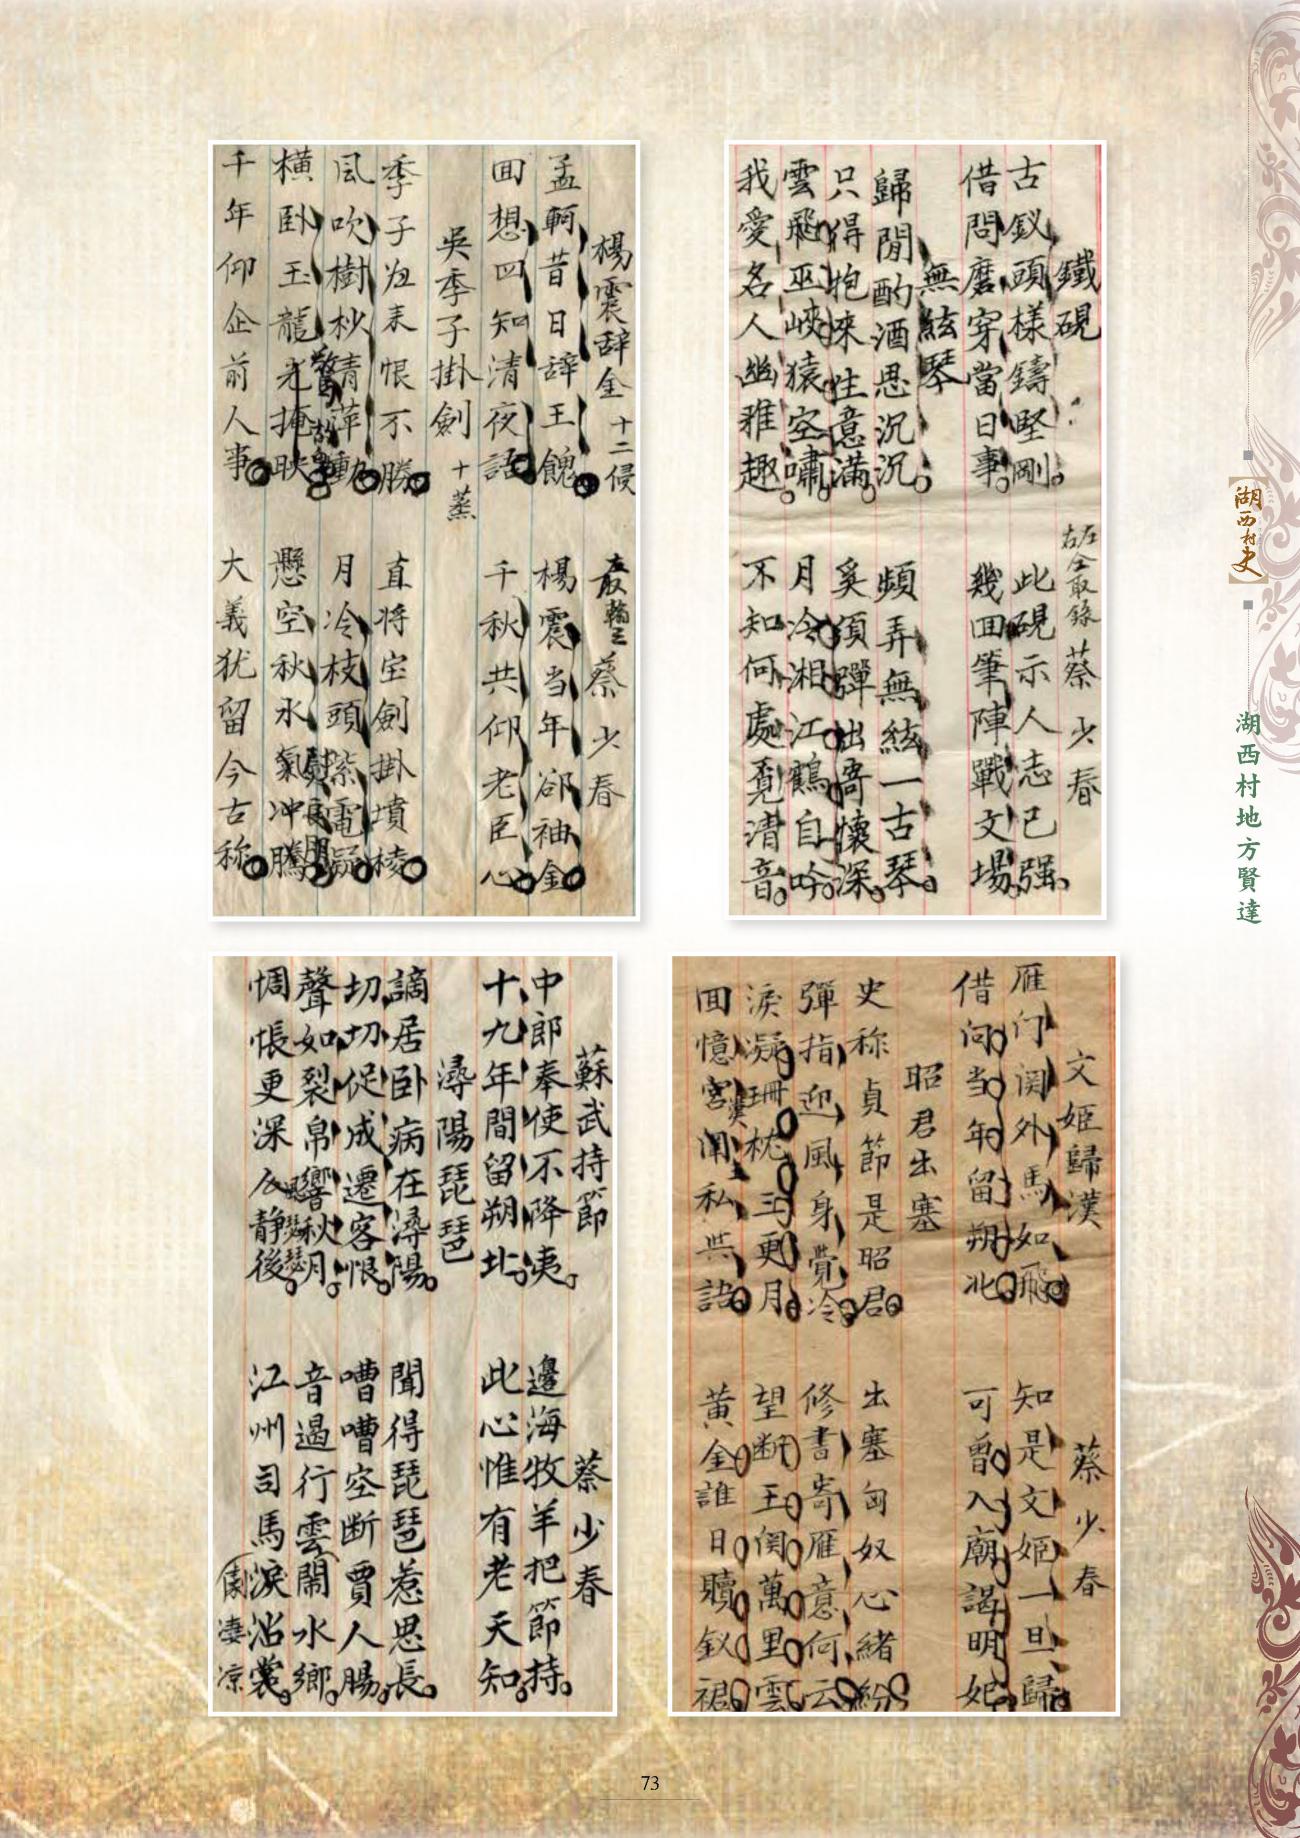 湖西村史
湖西村地方賢達
鐵硯
左右仝取錄 蔡少春
古釵頭樣鑄堅剛 此硯示人志已强
借問磨穿當日事 幾回筆陣戰文場
無絃琴
歸閒酌酒思沉沉 頻弄無絃一古琴
只得抱來性意滿 奚須彈出寄懷深
雲飛巫峽猿空嘯 月冷湘江鶴自吟
我愛名人幽雅趣 不知何處覓清音
楊震辞金 十二侵
蔡少春
孟軻昔日辞王餽 楊震当年郤袖金
回想四知清夜語 千秋共仰老臣心
吳季子掛劍 十蒸
季子歸来恨不勝 直将宝劍掛墳棱
风吹樹杪青萍動 月冷枝頭紫電凝
橫卧玉龍光掩映 懸空秋水氣冲騰
千年仰企前人事 大義犹留今古称
文姬歸漢
蔡少春
雁门関外馬如飛 知是文姬一旦歸
借问当年留朔北 可曾入廟謁明妃
昭君出塞
史称貞節是昭君 出塞匈奴心緒紛
彈指迎風身覺冷 修書寄雁意何云
淚凝珊枕三更月 望断王関萬里雲
回憶宮闱私共語 黃金誰日贖釵裙
蘇武持節
蔡少春
中郎奉使不降夷 邊海牧羊把節持
十九年間留朔北 此心惟有老天知
潯陽琵琶
謫居卧病在潯陽 聞得琵琶惹思長
切切促成遷客恨 嘈嘈空断賈人腸
聲如裂帛響秋月 音遏行雲鬧水鄉
惆悵更深人静後 江州司馬淚沾裳
凄凉
73